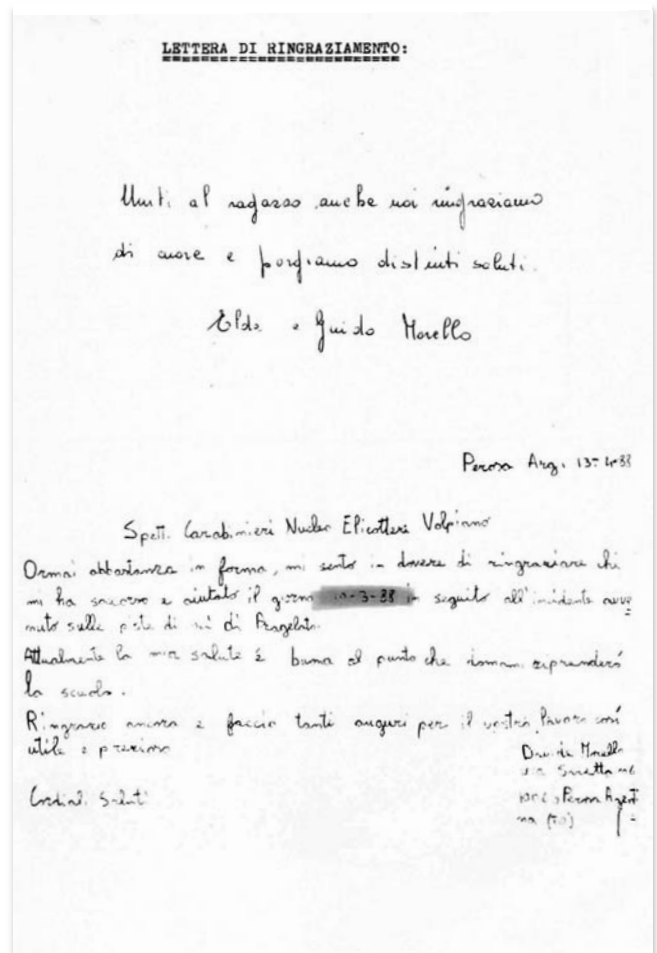 LETTERA DI RINGRAZIAMENTO:
Uniti al ragazzo anche noi ringraziamo
di cuore e porgiamo distinti saluti.
Elda e Guido Morello
Perosa Arg. 13-4-88
Spett. Carabinieri Nucleo Elicotteri Volpiano
Ormai abbastanza in forma, mi sento in dovere di ringraziare chi
mi ha soccorso e aiutato il giorno -3-88 in seguito all'incidente avve
nuto sulle piste di sci di Pragelato.
Attualmente la mia salute è buona al punto che domani riprenderó
la scuola.
Ringrazio ancora e faccio tanti auguri per il vostro lavoro così
utile e prezioso
Davide Morello
via
Perosa Argent
Cordiali Saluti
na (TO)